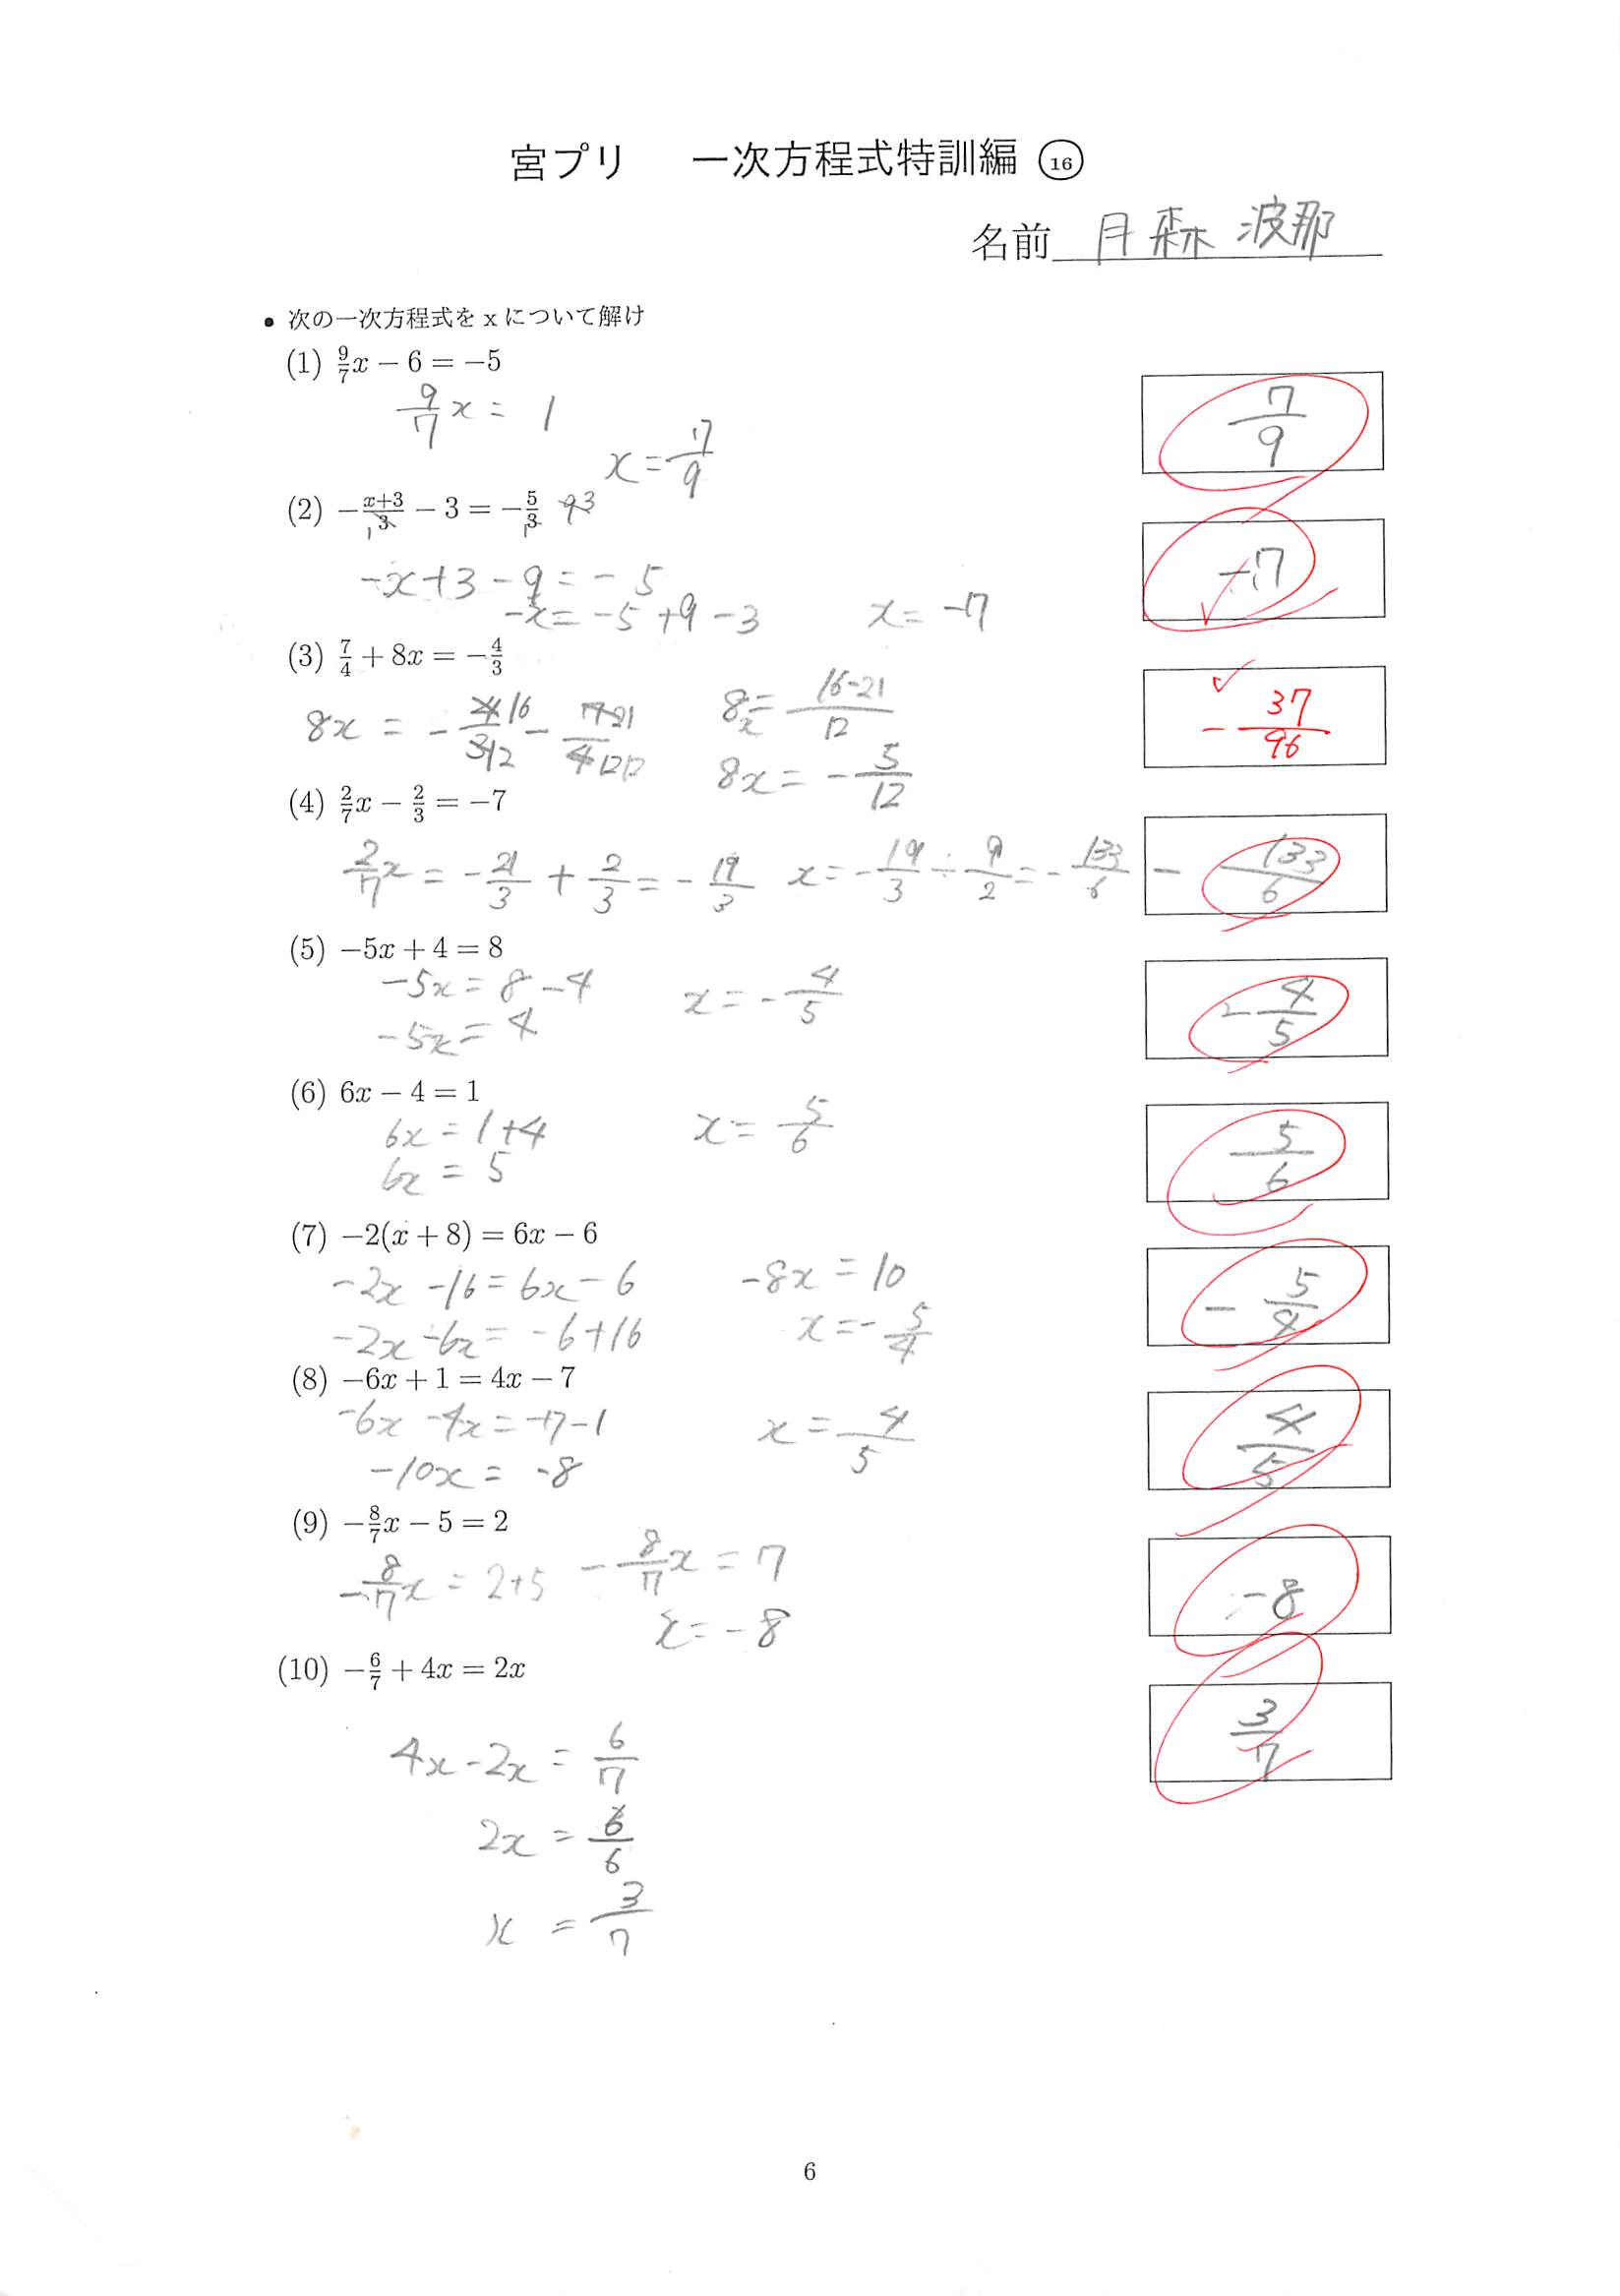 宮プリ 一次方程式特訓編 ⑯
名前 月森 波那
• 次の一次方程式を x について解け
(1) 9/7 x − 6 = −5
9/7 x = 1
x = 7/9
7/9
(2) −(x+3)/3 − 3 = −5/3
−x+3−9 = −5
−x = −5+9−3 x = −7
−7
(3) 7/4 + 8x = −4/3
8x = −16/12 − 21/12
8x = (16−21)/12
8x = −5/12
−37/96
(4) 2/7 x − 2/3 = −7
2/7 x = −21/3 + 2/3 = −19/3 x = −19/3 ÷ 9/2 = −133/6
−133/6
(5) −5x + 4 = 8
−5x = 8−4
−5x = 4
x = −4/5
−4/5
(6) 6x − 4 = 1
6x = 1+4
6x = 5
x = 5/6
5/6
(7) −2(x + 8) = 6x − 6
−2x −16 = 6x−6
−2x −6x = −6+16
−8x = 10
x = −5/4
−5/4
(8) −6x + 1 = 4x − 7
−6x −4x = −7−1
−10x = −8
x = 4/5
4/5
(9) −8/7 x − 5 = 2
−8/7 x = 2+5
−8/7 x = 7
x = −8
−8
(10) −6/7 + 4x = 2x
4x−2x = 6/7
2x = 6/6
x = 3/7
3/7
6